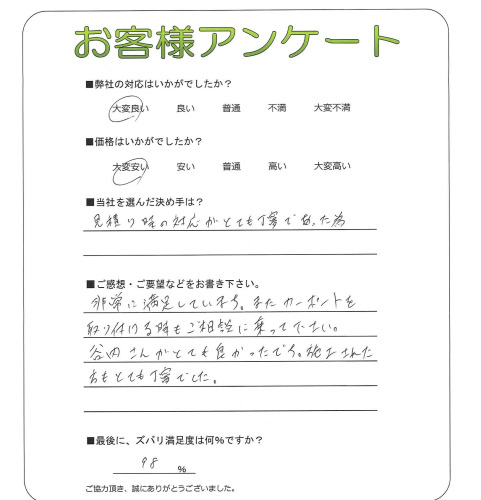 お客様アンケート
■弊社の対応はいかがでしたか?
大変良い 良い 普通 不満 大変不満
■価格はいかがでしたか?
大変安い 安い 普通 高い 大変高い
■当社を選んだ決め手は?
見積り時の対応がとても丁寧であった為
■ご感想・ご要望などをお書き下さい。
非常に満足しています。またカーポートを
取り付ける時もご相談に乗って下さい。
谷内さんがとても良かったです。施工された
方もとても丁寧でした。
■最後に、ズバリ満足度は何%ですか?
98 %
ご協力頂き、誠にありがとうございました。